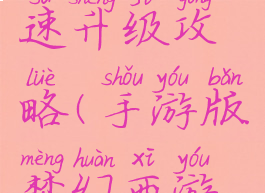 sù shēng jí gōng
速升级攻
lüè shǒu yóu bǎn
略(手游版
mèng huàn xī yóu
梦幻西游